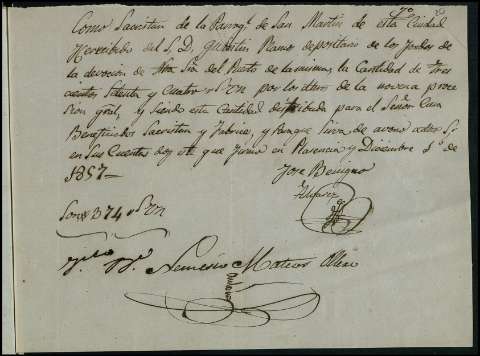 Como Sacristan de la Parroq.l de San Martin de esta Ciudad
He recibido del S. D. Quintin Plano depositario de los fondos de
la devocion de Ntra Sra del Puerto de la misma, la Cantidad de tres
cientos setenta y cuatro rs vn por los dros de la novena proce
sion gral, y siendo esta Cantidad distribuida para el Señor Cura
Beneficiados Sacristan y Fabrica, y para que sirva de avono a dho Sr
en sus Cuentas doy este que firmo en Plasencia y Diciembre 1º de
1857
Jose Benigno
Son 374 rs vn
Vº Bº Nemesio Mateos